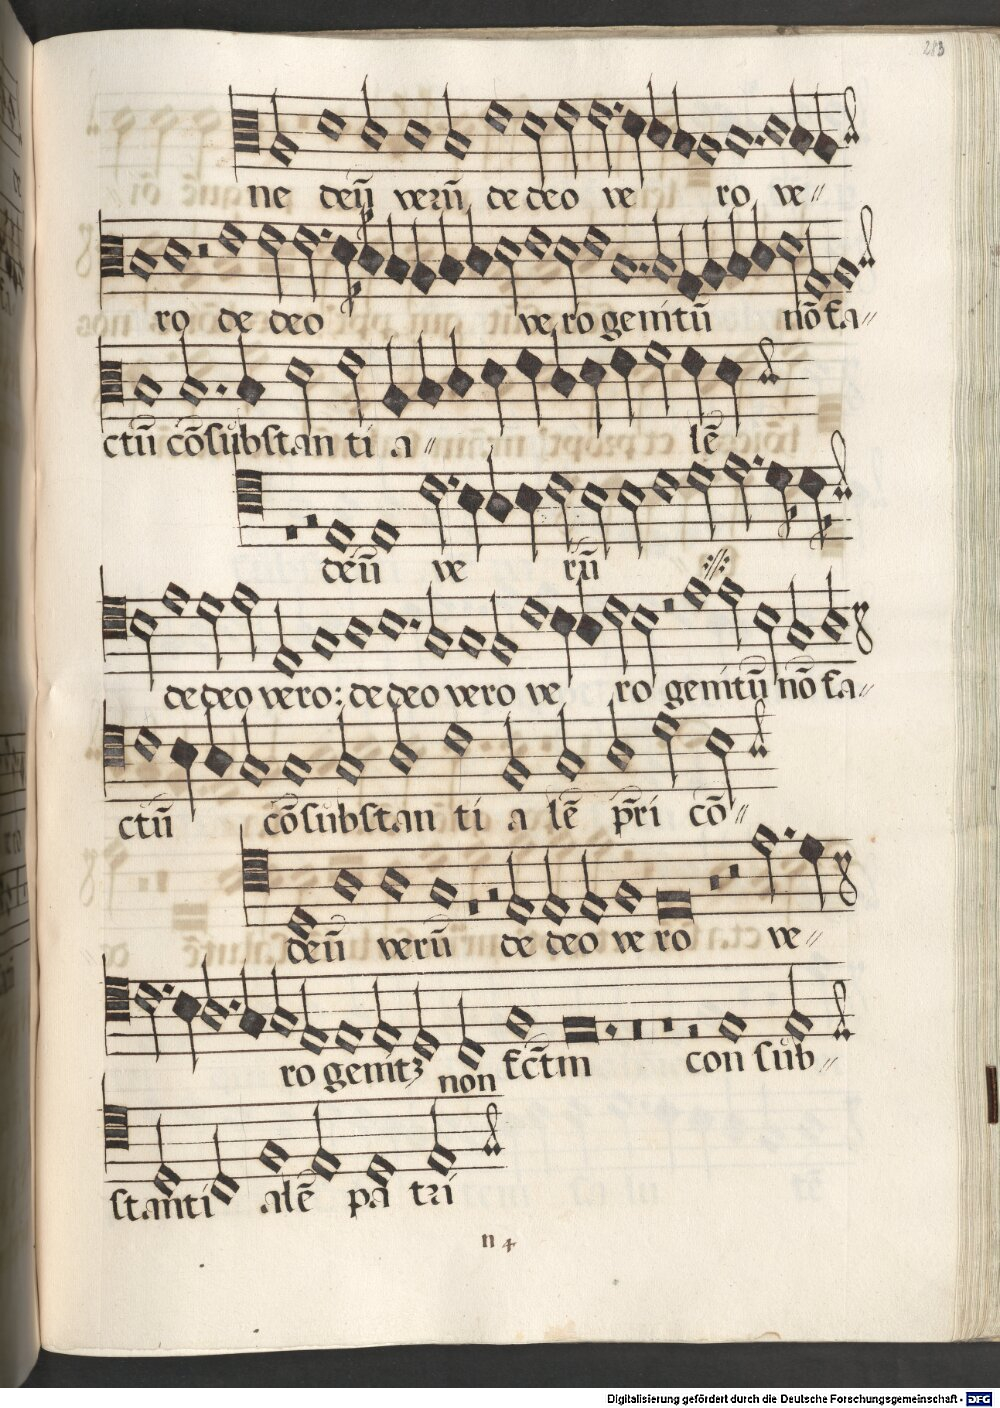 283
ne deū verū de deo ve ro ve〃
ro de deo ve ro genitū nō fa〃
ctū cōsubstan ti a〃 lē
deū ve rū
de deo vero: de deo vero ve ro genitū nō fa〃
ctū cōsubstan ti a lē pr̄i cō〃
deū verū de deo ve ro ve〃
ro genitꝫ non fct̄m con sub〃
stanti alē pa tri
n 4
Digitalisierung gefördert durch die Deutsche Forschungsgemeinschaft - DFG